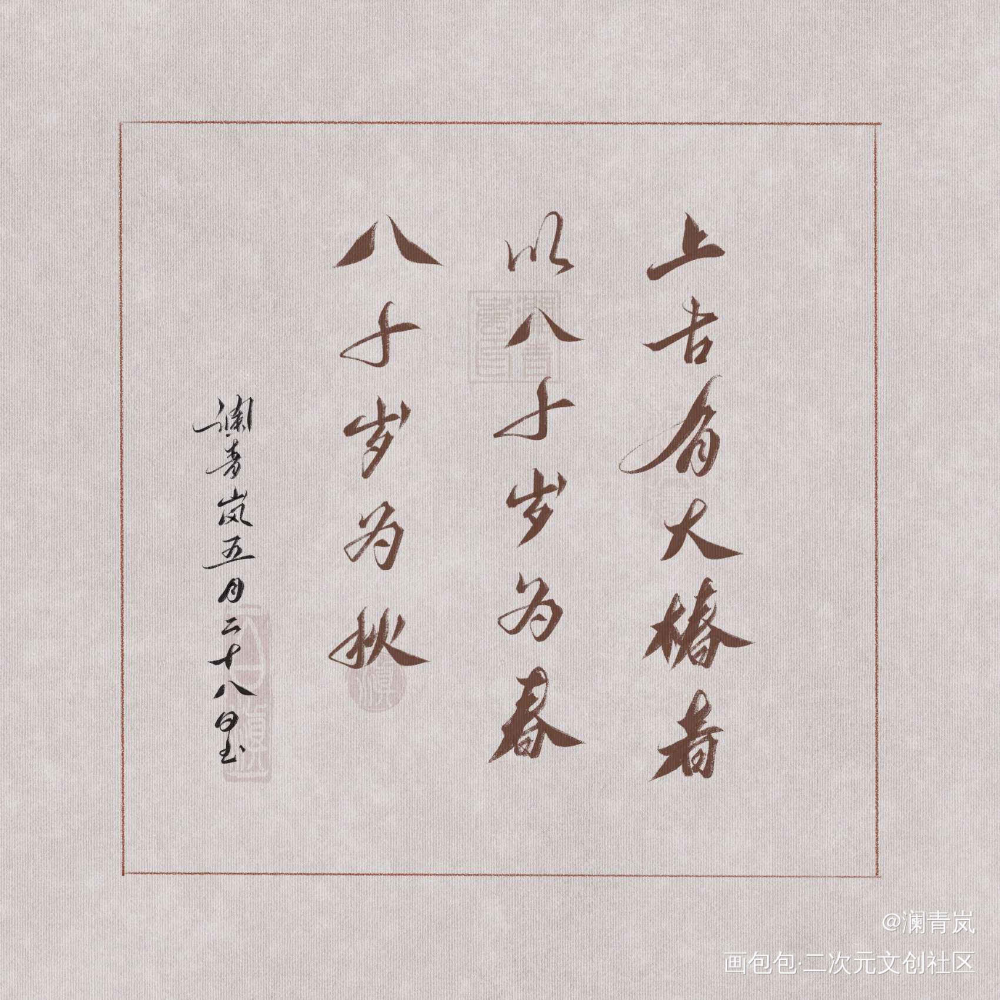 上古有大椿者
以八千岁为春
八千岁为秋
澜青岚五月二十八日书
@澜青岚
画包包·二次元文创社区